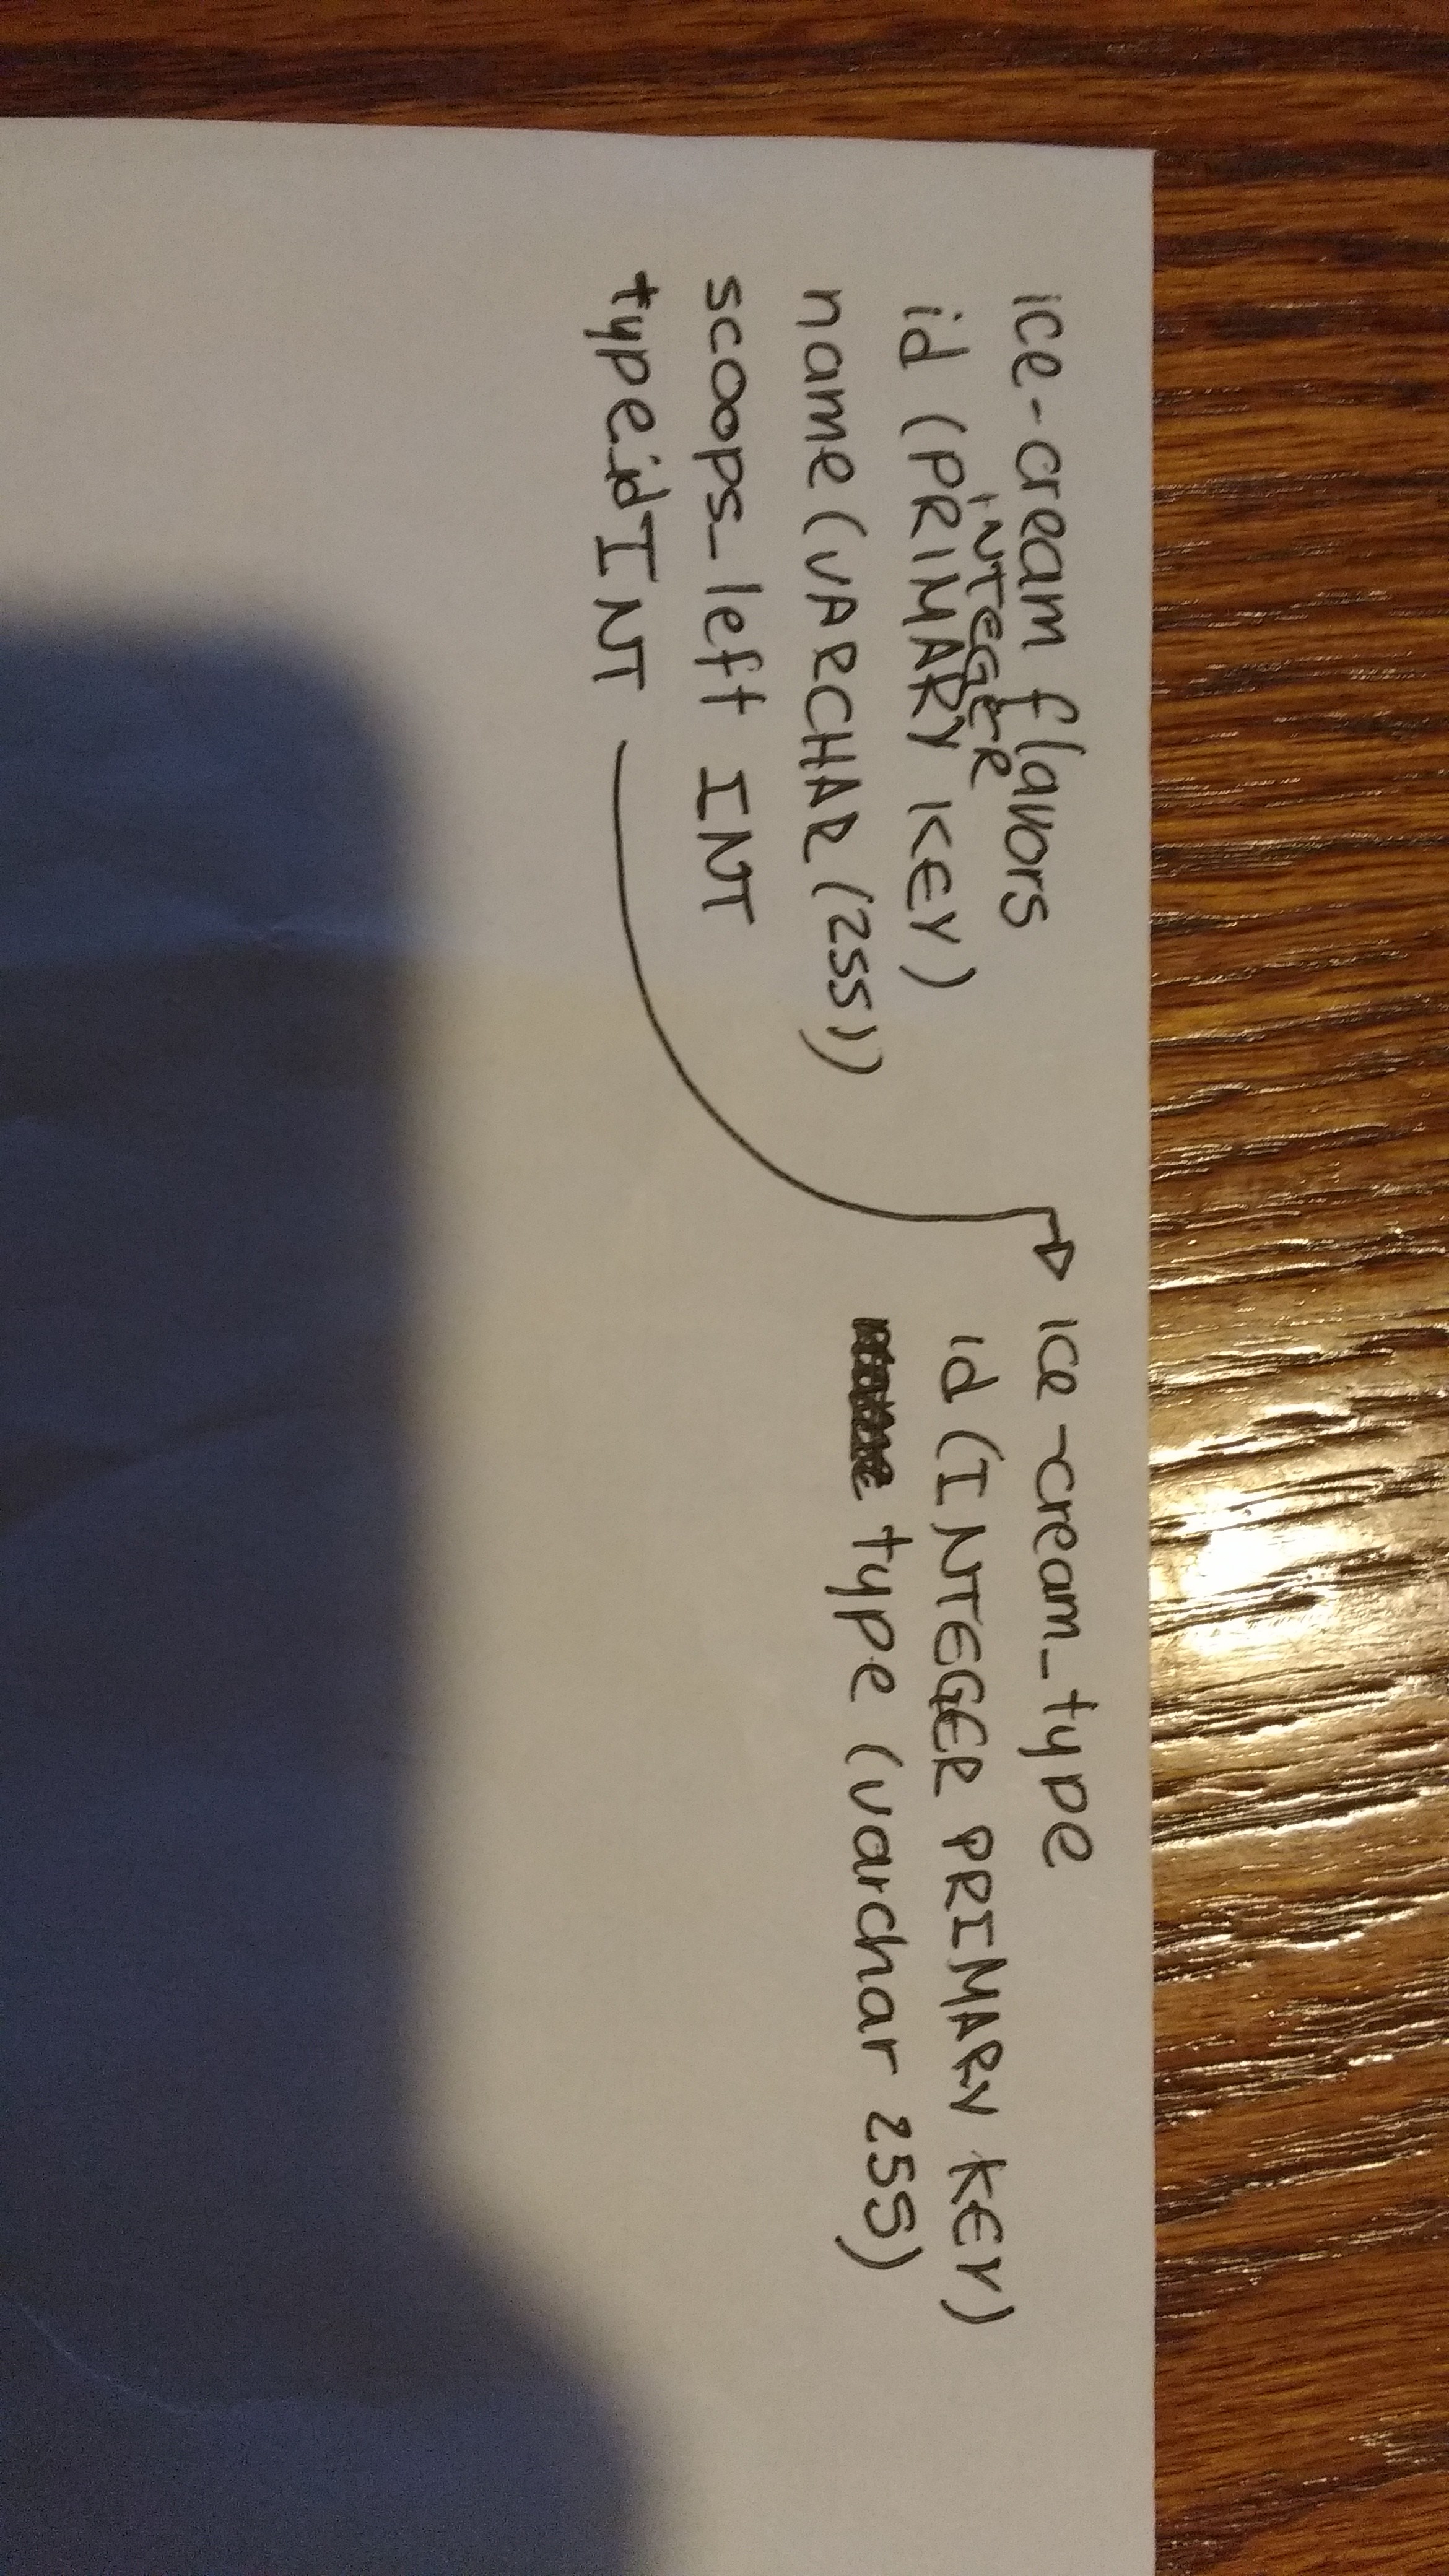 ice-cream flavors
INTEGER
id (PRIMARY KEY)
name (VARCHAR (255))
scoops_left INT
type_id INT
ice-cream_type
id (INTEGER PRIMARY KEY)
type (varchar 255)